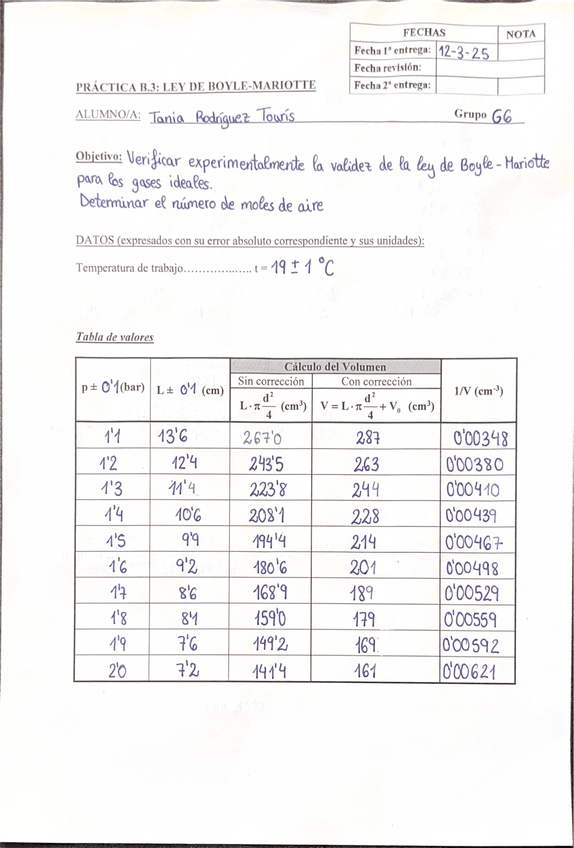 FECHAS NOTA
Fecha 1ª entrega: 12-3-25
Fecha revisión:
Fecha 2ª entrega:
PRÁCTICA B.3: LEY DE BOYLE-MARIOTTE
ALUMNO/A: Tania Rodríguez Tourís Grupo G6
Objetivo: Verificar experimentalmente la validez de la ley de Boyle-Mariotte
para los gases ideales.
Determinar el número de moles de aire
DATOS (expresados con su error absoluto correspondiente y sus unidades):
Temperatura de trabajo.................. t = 19 ± 1 °C
Tabla de valores
Cálculo del Volumen
p ± 0'1 (bar) L ± 0'1 (cm) Sin corrección Con corrección 1/V (cm⁻³)
L·π d²/4 (cm³) V = L·π d²/4 + V₀ (cm³)
1'1 13'6 267'0 287 0'00348
1'2 12'4 243'5 263 0'00380
1'3 11'4 223'8 244 0'00410
1'4 10'6 208'1 228 0'00439
1'5 9'9 194'4 214 0'00467
1'6 9'2 180'6 201 0'00498
1'7 8'6 168'9 189 0'00529
1'8 8'1 159'0 179 0'00559
1'9 7'6 149'2 169 0'00592
2'0 7'2 141'4 161 0'00621